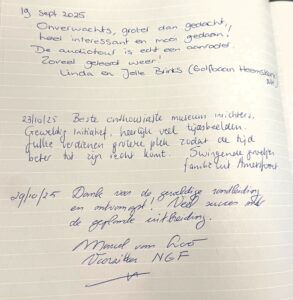 19 sept 2025
Onverwachts, groter dan gedacht,
heel interessant en mooi gedaan!
De audiotour is echt een aanrader.
Zoveel geleerd weer!
Linda en Jelle Brinks (Golfbaan Heemskerk
23/10/25 Beste enthousiaste museum inrichters.
Geweldig initiatief, heerlijk veel tijdsbeelden.
Jullie verdienen grotere plek zodat de tijd
beter tot zijn recht komt. Swingende groetjes
familie uit Amersfoort
29/10/25 Dank voor de geweldige rondleiding
en ontvangst! Veel succes met
de geplande uitbreiding.
Marcel van
Voorzitter NGF